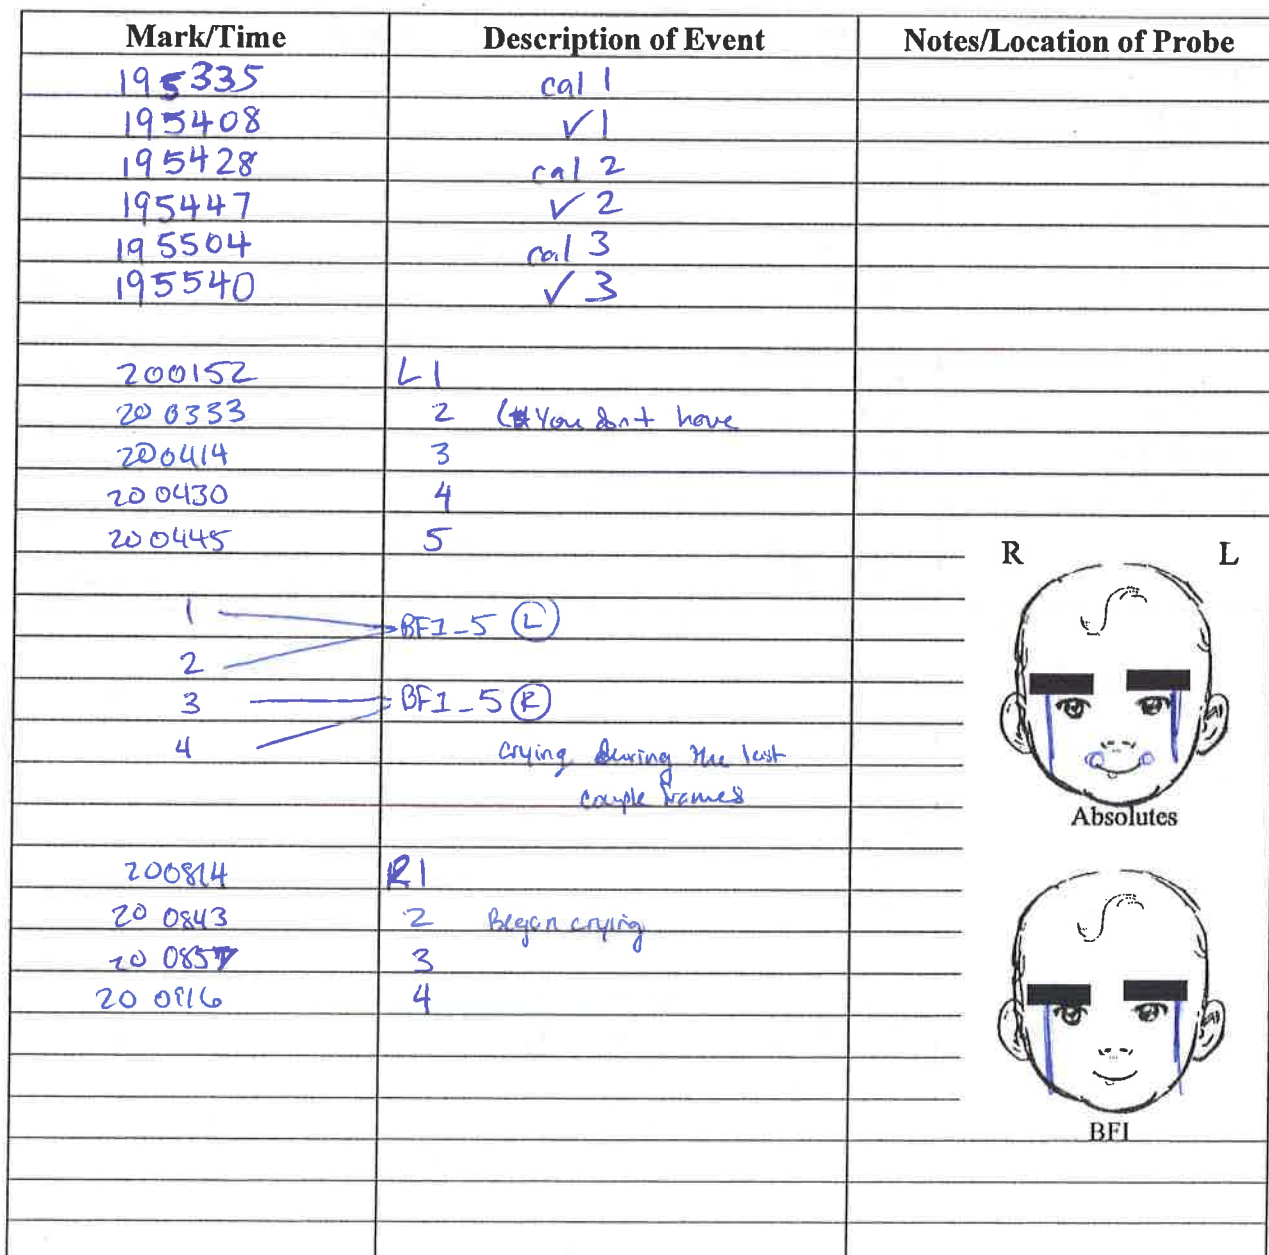 Mark/Time Description of Event Notes/Location of Probe
195335 cal 1
195408 ✓ 1
195428 cal 2
195447 ✓ 2
195504 cal 3
195540 ✓ 3
200152 L1
200333 2 (You don't have
200414 3
200430 4
200445 5
R L
1
BFI_5 (L)
2
3 BFI_5 (R)
4 crying during the last
couple frames
Absolutes
200814 R1
200843 2 Began crying
200857 3
200916 4
BFI